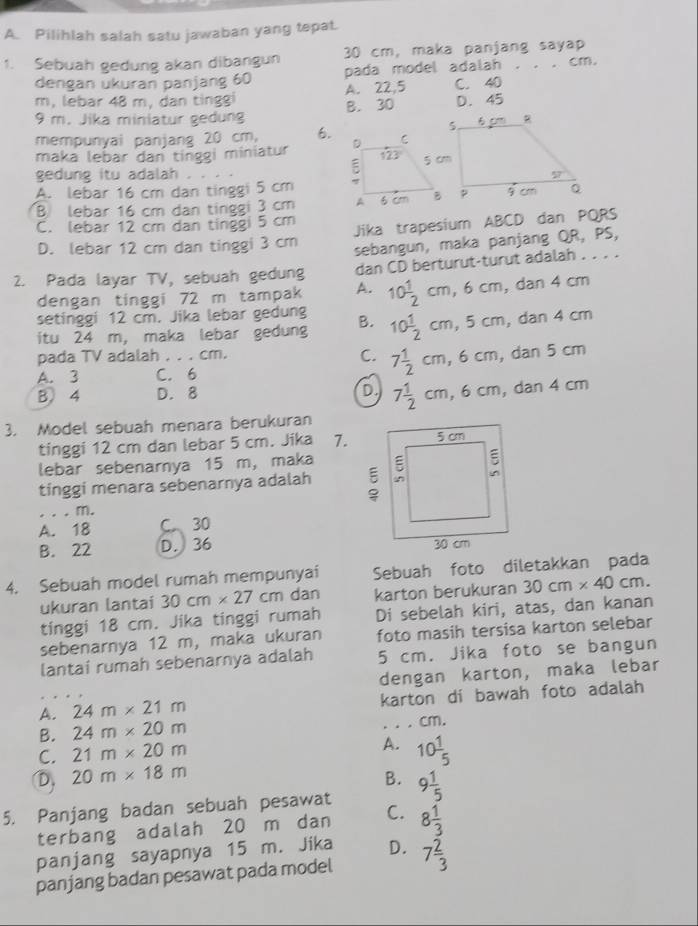 A. Pilihlah salah satu jawaban yang tepat.
1. Sebuah gedung akan dibangun
dengan ukuran panjang 60
m, lebar 48 m, dan tinggi
9 m. Jika miniatur gedung
mempunyai panjang 20 cm,
maka lebar dan tinggi miniatur
gedung itu adalah . . . .
A. lebar 16 cm dan tinggi 5 cm
B lebar 16 cm dan tinggi 3 cm
C. lebar 12 cm dan tinggi 5 cm
D. lebar 12 cm dan tinggi 3 cm
2. Pada layar TV, sebuah gedung
dengan tinggi 72 m tampak
setinggi 12 cm. Jika lebar gedung
itu 24 m, maka lebar gedung
pada TV adalah . . . cm.
A. 3 C. 6
B) 4 D. 8
3. Model sebuah menara berukuran
tinggi 12 cm dan lebar 5 cm. Jika
lebar sebenarnya 15 m, maka
tinggi menara sebenarnya adalah
. . . m.
A. 18 C. 30
B. 22 D. 36
4. Sebuah model rumah mempunyai
ukuran lantai 30 cm × 27 cm dan
tinggi 18 cm. Jika tinggi rumah
sebenarnya 12 m, maka ukuran
lantai rumah sebenarnya adalah
. . . .
A. 24 m × 21 m
B. 24 m × 20 m
C. 21 m × 20 m
D. 20 m × 18 m
5. Panjang badan sebuah pesawat
terbang adalah 20 m dan
panjang sayapnya 15 m. Jika
panjang badan pesawat pada model
30 cm, maka panjang sayap
pada model adalah . . . cm.
A. 22,5 C. 40
B. 30 D. 45
6.
D C
123°
5 cm
A 6 cm B
S 6 cm R
57°
P 9 cm Q
Jika trapesium ABCD dan PQRS
sebangun, maka panjang QR, PS,
dan CD berturut-turut adalah . . . .
A. 10 1/2 cm, 6 cm, dan 4 cm
B. 10 1/2 cm, 5 cm, dan 4 cm
C. 7 1/2 cm, 6 cm, dan 5 cm
D. 7 1/2 cm, 6 cm, dan 4 cm
7.
5 cm
40 cm
5 cm
5 cm
30 cm
Sebuah foto diletakkan pada
karton berukuran 30 cm × 40 cm.
Di sebelah kiri, atas, dan kanan
foto masih tersisa karton selebar
5 cm. Jika foto se bangun
dengan karton, maka lebar
karton di bawah foto adalah
. . . cm.
A. 10 1/5
B. 9 1/5
C. 8 1/3
D. 7 2/3